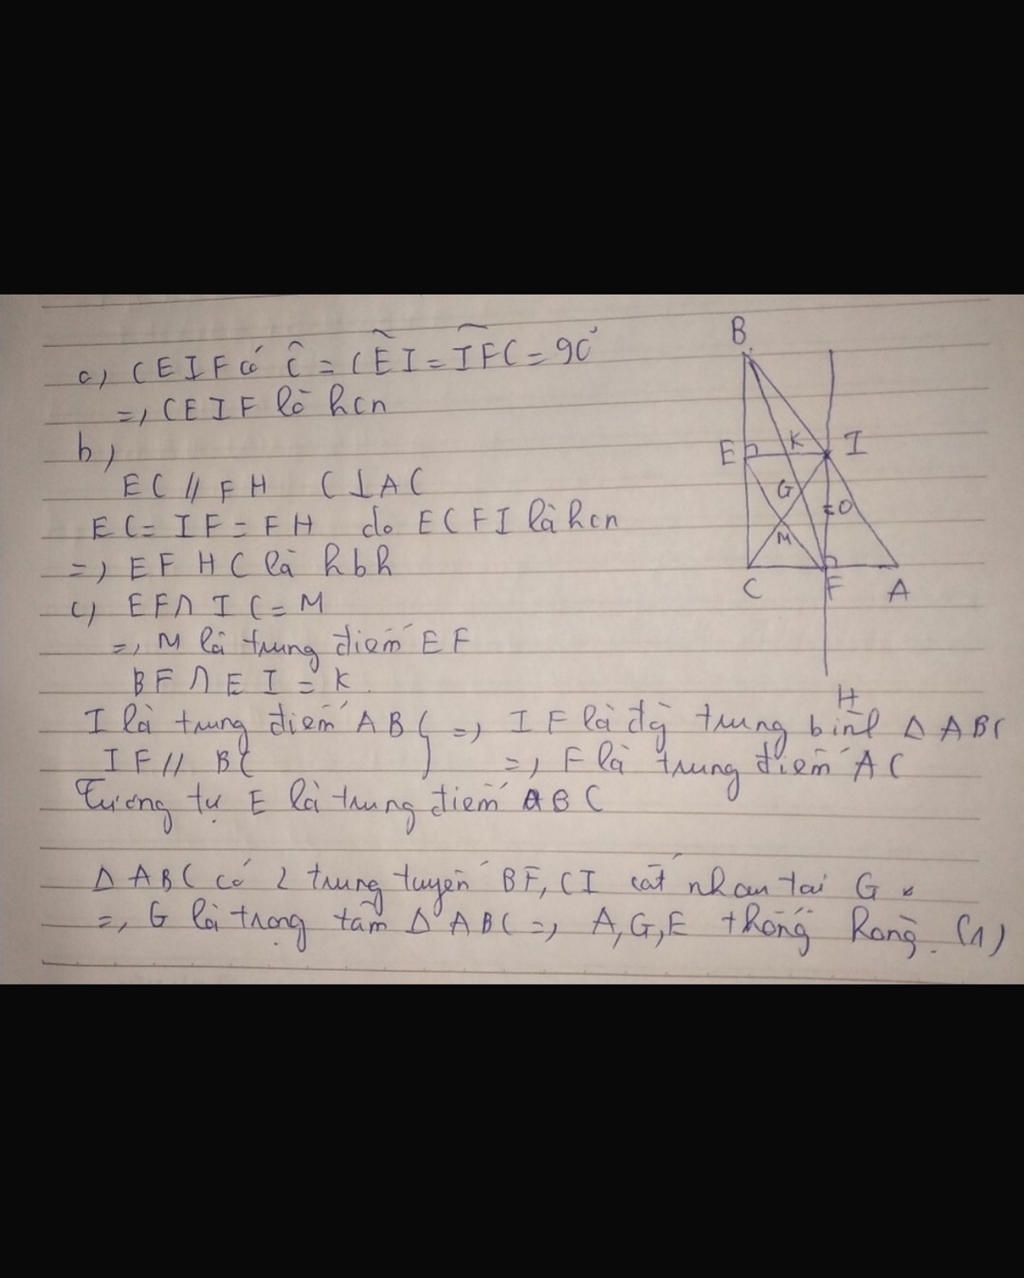 a) CEIF có Ĉ = CÊI = IF̂C = 90°
=> CEIF là hcn
b)
EC // FH C ⊥ AC
EC = IF = FH do ECFI là hcn
=> EFHC là hbh
c) EF ∩ IC = M
=> M là trung điểm EF
BF ∩ EI = K
I là trung điểm AB } => IF là đg trung bình Δ ABC
IF // BC => F là trung điểm AC
Tương tự E là trung điểm BC
Δ ABC có 2 trung tuyến BF, CI cắt nhau tại G
=> G là trọng tâm Δ ABC => A, G, E thẳng hàng. (1)
B
E K I
G O
M
C F A
H